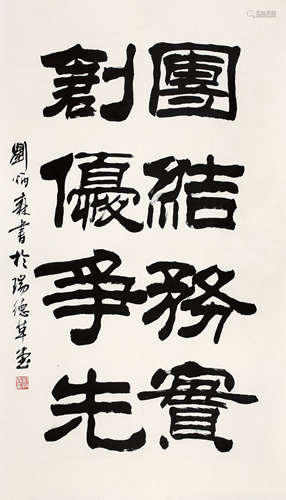 團結務實
創優爭先
劉炳森書於瑞德草堂